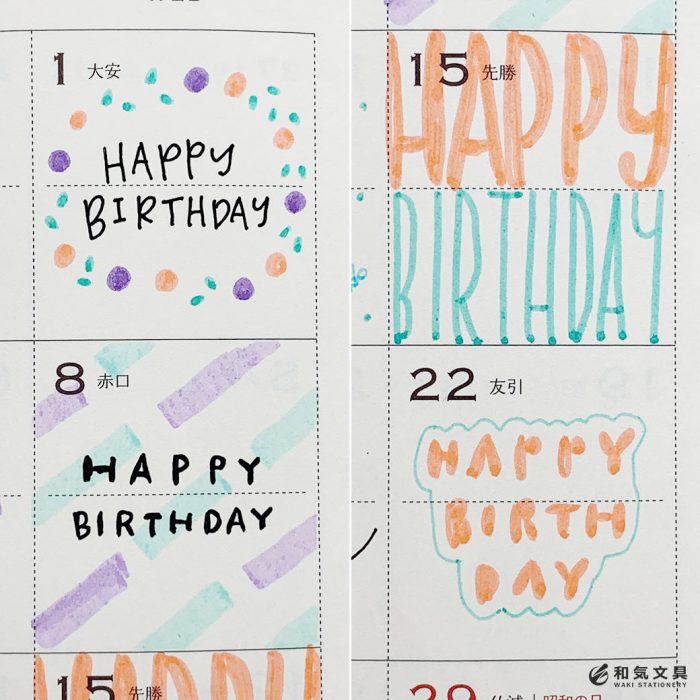 1 大安
HAPPY
BIRTHDAY
8 赤口
HAPPY
BIRTHDAY
15 先勝
15 先勝
HAPPY
BIRTHDAY
22 友引
HAPPY
BIRTH
DAY
29 仏滅 昭和の日
和気文具
WAKI STATIONERY